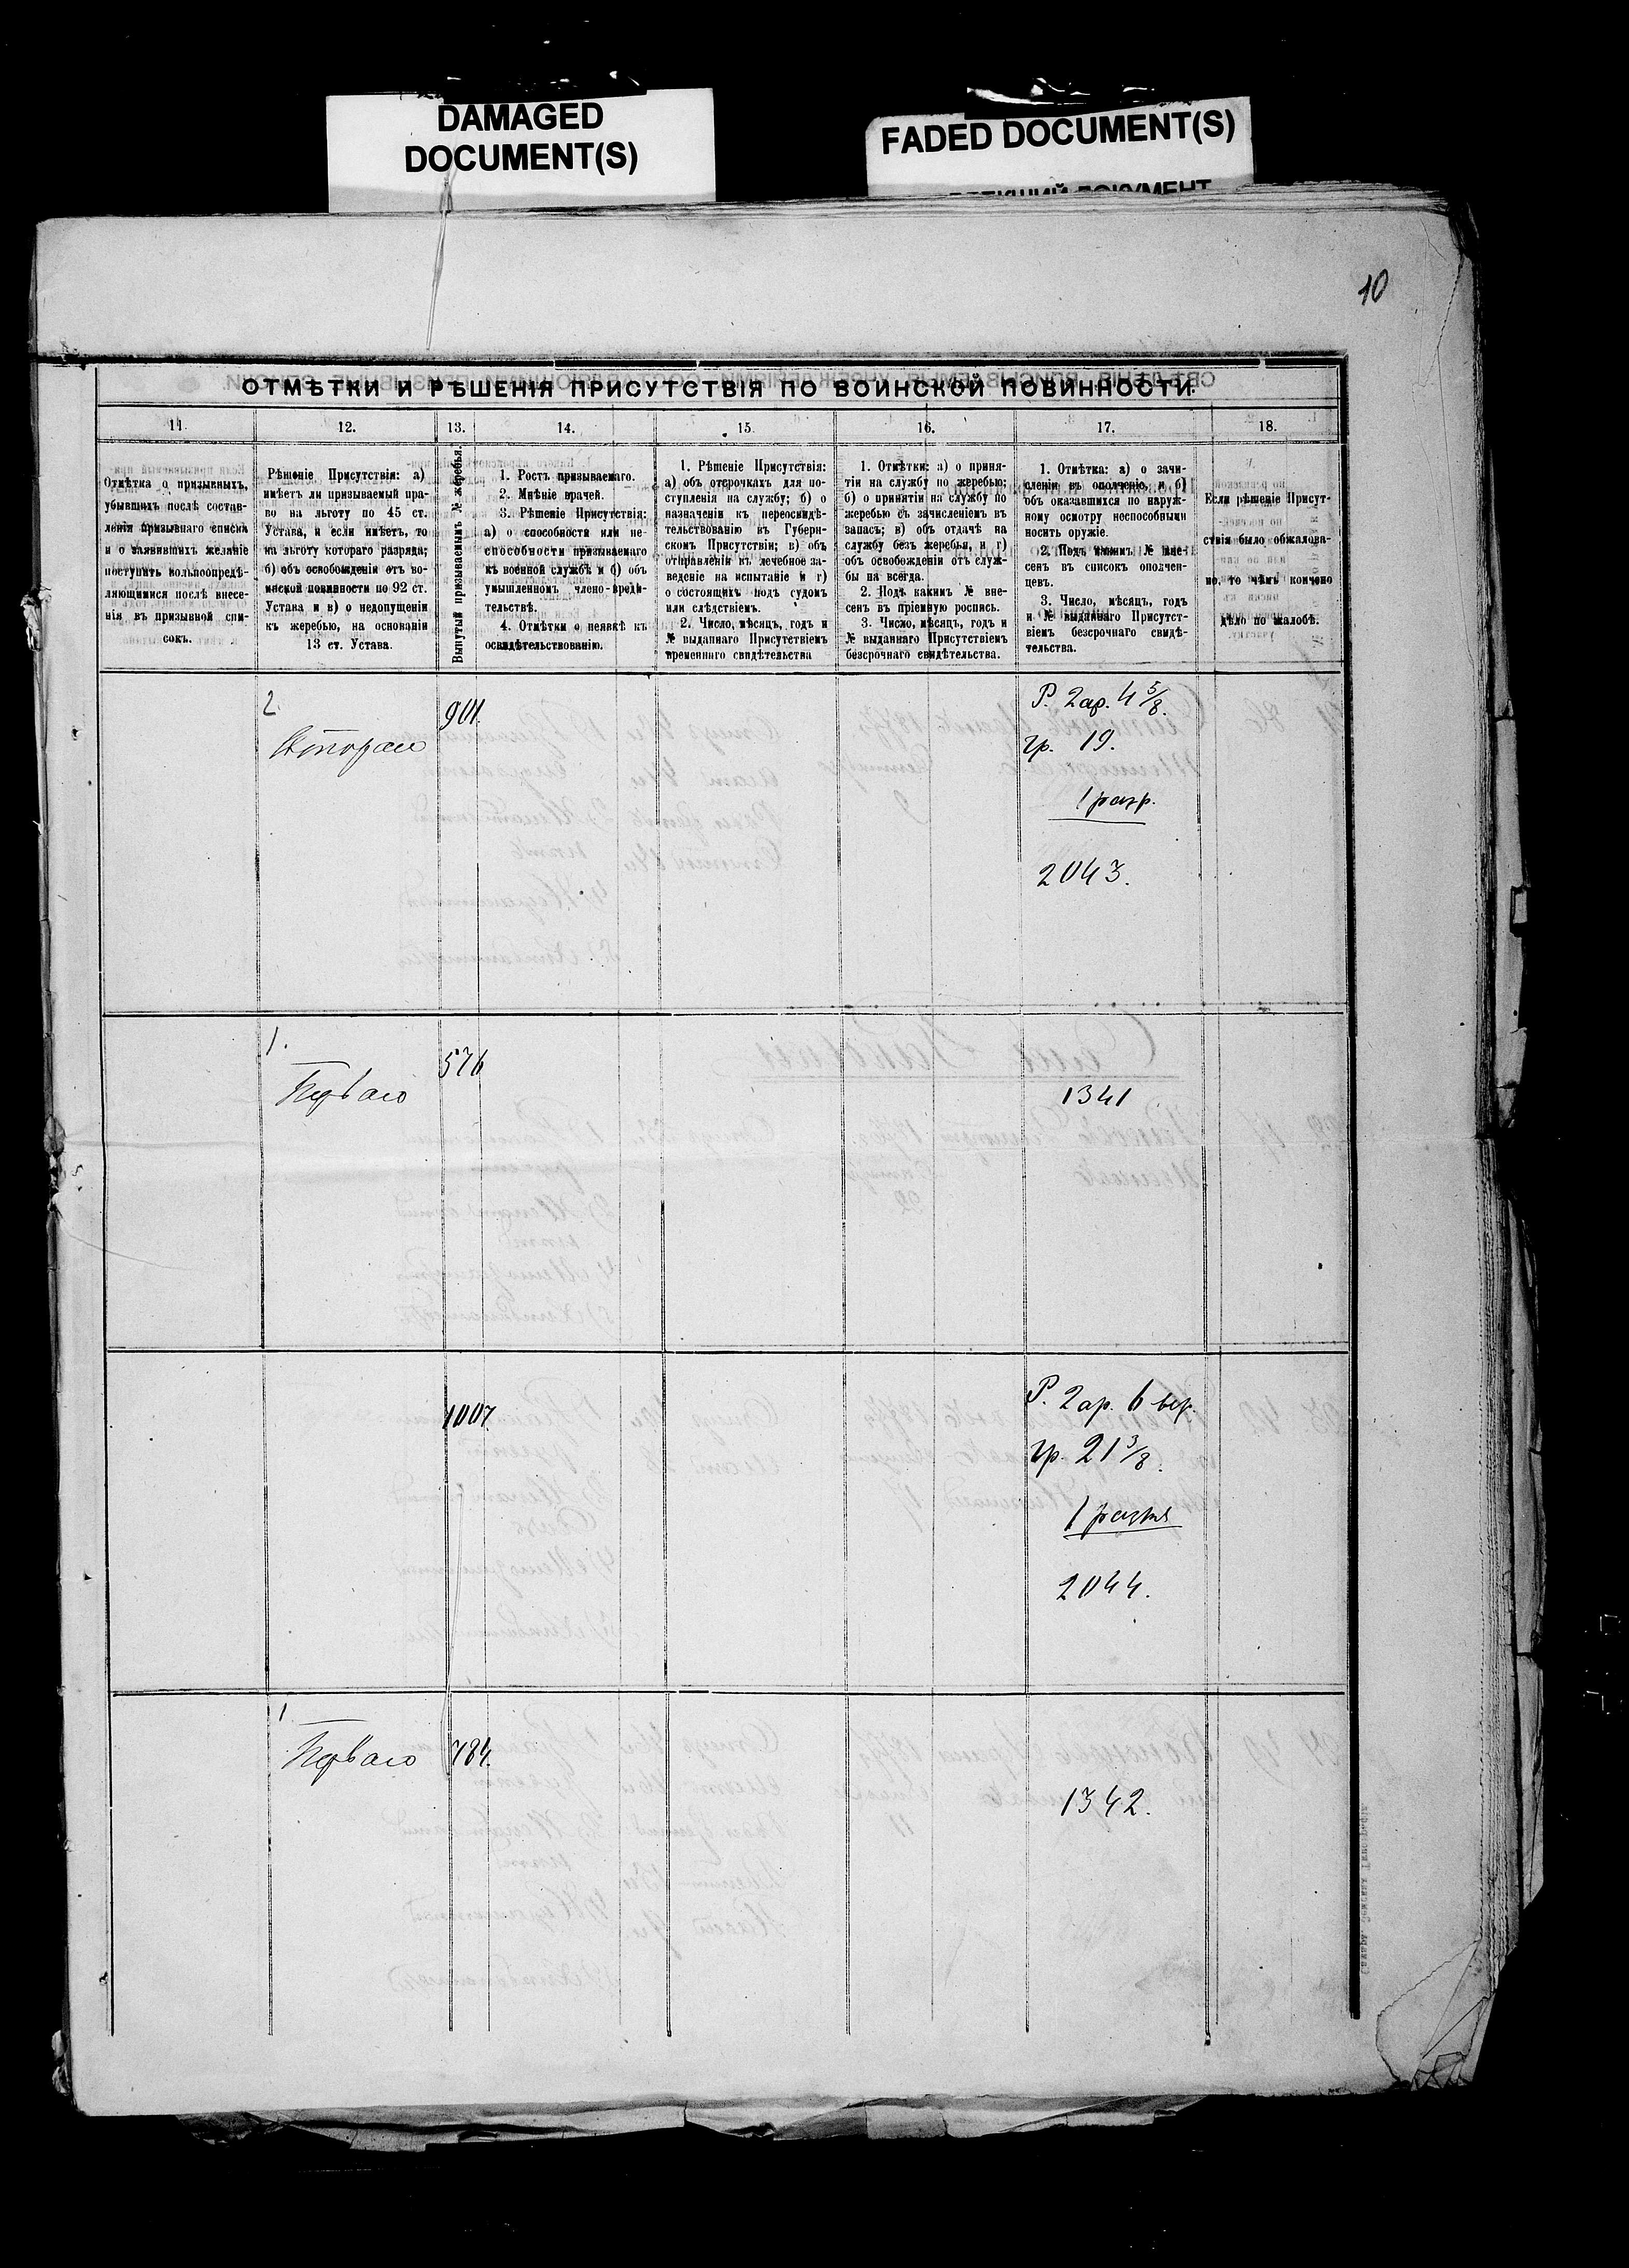 DAMAGED
DOCUMENT(S)
FADED DOCUMENT(S)
10
ОТМѢТКИ И РѢШЕНІЯ ПРИСУТСТВІЯ ПО ВОИНСКОЙ ПОВИННОСТИ.
11.
12.
13.
14.
15.
16.
17.
18.
Отмѣтка о призывныхъ,
убывшихъ послѣ состав-
ленія призывнаго списка
и о заявившихъ желаніе
поступить вольноопредѣ-
ляющимися послѣ внесе-
нія въ призывной спи-
сокъ.
Рѣшеніе Присутствія: а)
имѣетъ ли призываемый пра-
во на льготу по 45 ст.
Устава, и если имѣетъ, то
на льготу котораго разряда;
б) объ освобожденіи отъ во-
инской повинности по 92 ст.
Устава и в) о недопущеніи
къ жеребью, на основаніи
13 ст. Устава.
Вынутый призываемымъ № жеребья.
1. Ростъ призываемаго.
2. Мнѣніе врачей.
3. Рѣшеніе Присутствія:
а) о способности или не-
способности призываемаго
къ военной службѣ и б) объ
умышленномъ члено-вреди-
тельствѣ.
4. Отмѣтки о неявкѣ къ
освидѣтельствованію.
1. Рѣшеніе Присутствія:
а) объ отсрочкахъ для по-
ступленія на службу; б) о
назначеніи къ переосвидѣ-
тельствованію въ Губерн-
скомъ Присутствіи; в) объ
отправленіи въ лечебное за-
веденіе на испытаніе и г)
о состоящихъ подъ судомъ
или слѣдствіемъ.
2. Число, мѣсяцъ, годъ и
№ выданнаго Присутствіемъ
временнаго свидѣтельства
1. Отмѣтки: а) о приня-
тіи на службу по жеребью;
б) о принятіи на службу по
жеребью съ зачисленіемъ въ
запасъ; в) объ отдачѣ на
службу безъ жеребья, и г)
объ освобожденіи отъ служ-
бы на всегда.
2. Подъ какимъ № вне-
сенъ въ пріемную роспись.
3. Число, мѣсяцъ, годъ и
№ выданнаго Присутствіемъ
безсрочнаго свидѣтельства.
1. Отмѣтка: а) о зачи-
сленіи въ ополченіе, и б)
объ оказавшихся по наруж-
ному осмотру неспособными
носить оружіе.
2. Подъ какимъ № вне-
сенъ въ списокъ ополчен-
цевъ.
3. Число, мѣсяцъ, годъ
и № выданнаго Присутст-
віемъ безсрочнаго свидѣ-
тельства.
Если рѣшеніе Присут-
ствія было обжалова-
но, то чѣмъ кончено
дѣло по жалобѣ.
2
Второго
901.
Р. 2 ар. 4 5/8.
гр. 19.
1 разр.
2043.
1.
Перваго
576
1341
1007.
Р. 2 ар. 6 вер.
гр. 21 3/8.
1 разр
2044.
1
Перваго
784.
1342.